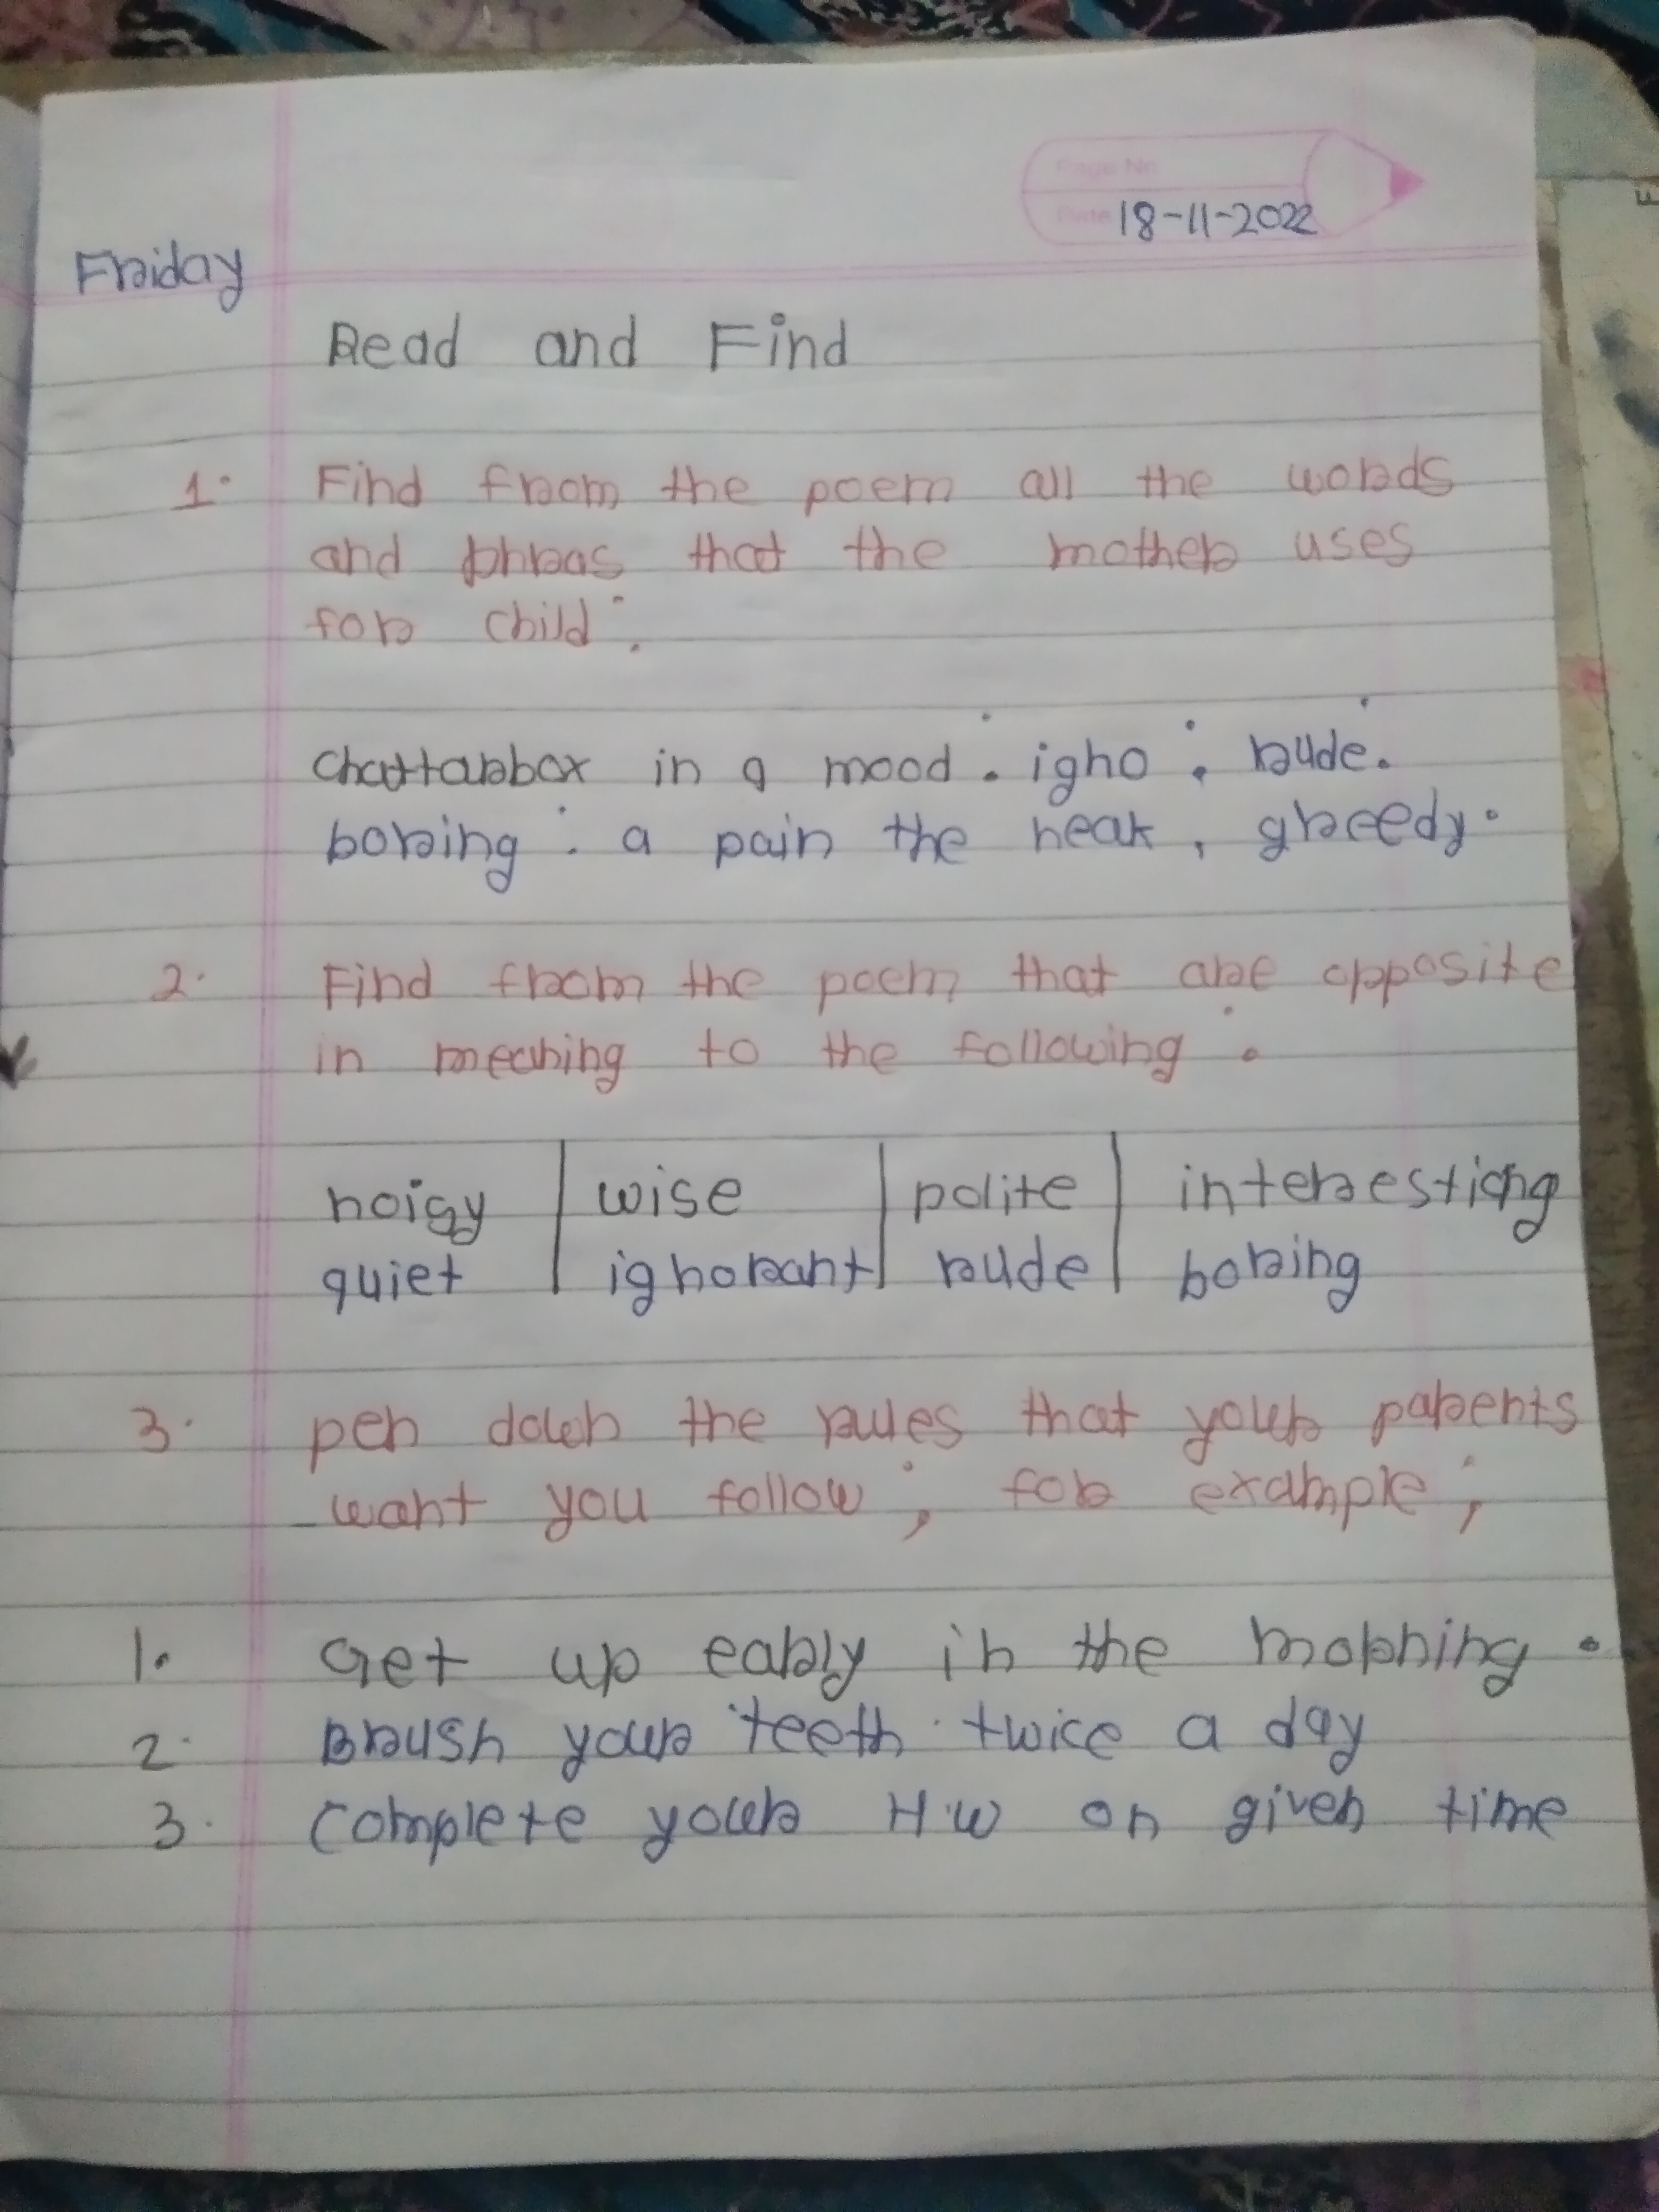 Page No
Date 18-11-2022
Friday
Read and Find
1. Find from the poem all the words
and phras that the mother uses
for child :
chattarbox in a mood . igno ; rude.
boring : a pain the neak , greedy.
2. Find from the poem that are opposite
in meaning to the following .
noisy | wise | polite | interesting
quiet | ignorant | rude | boring
3. pen down the rules that your parents
want you follow ; for example ;
1. Get up early in the morning .
2. Brush your teeth twice a day
3. complete your H.w on given time